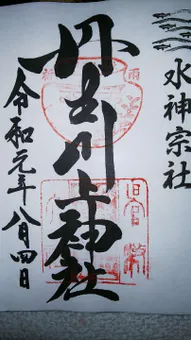 水神宗社
丹生川上神社
令和元年八月四日